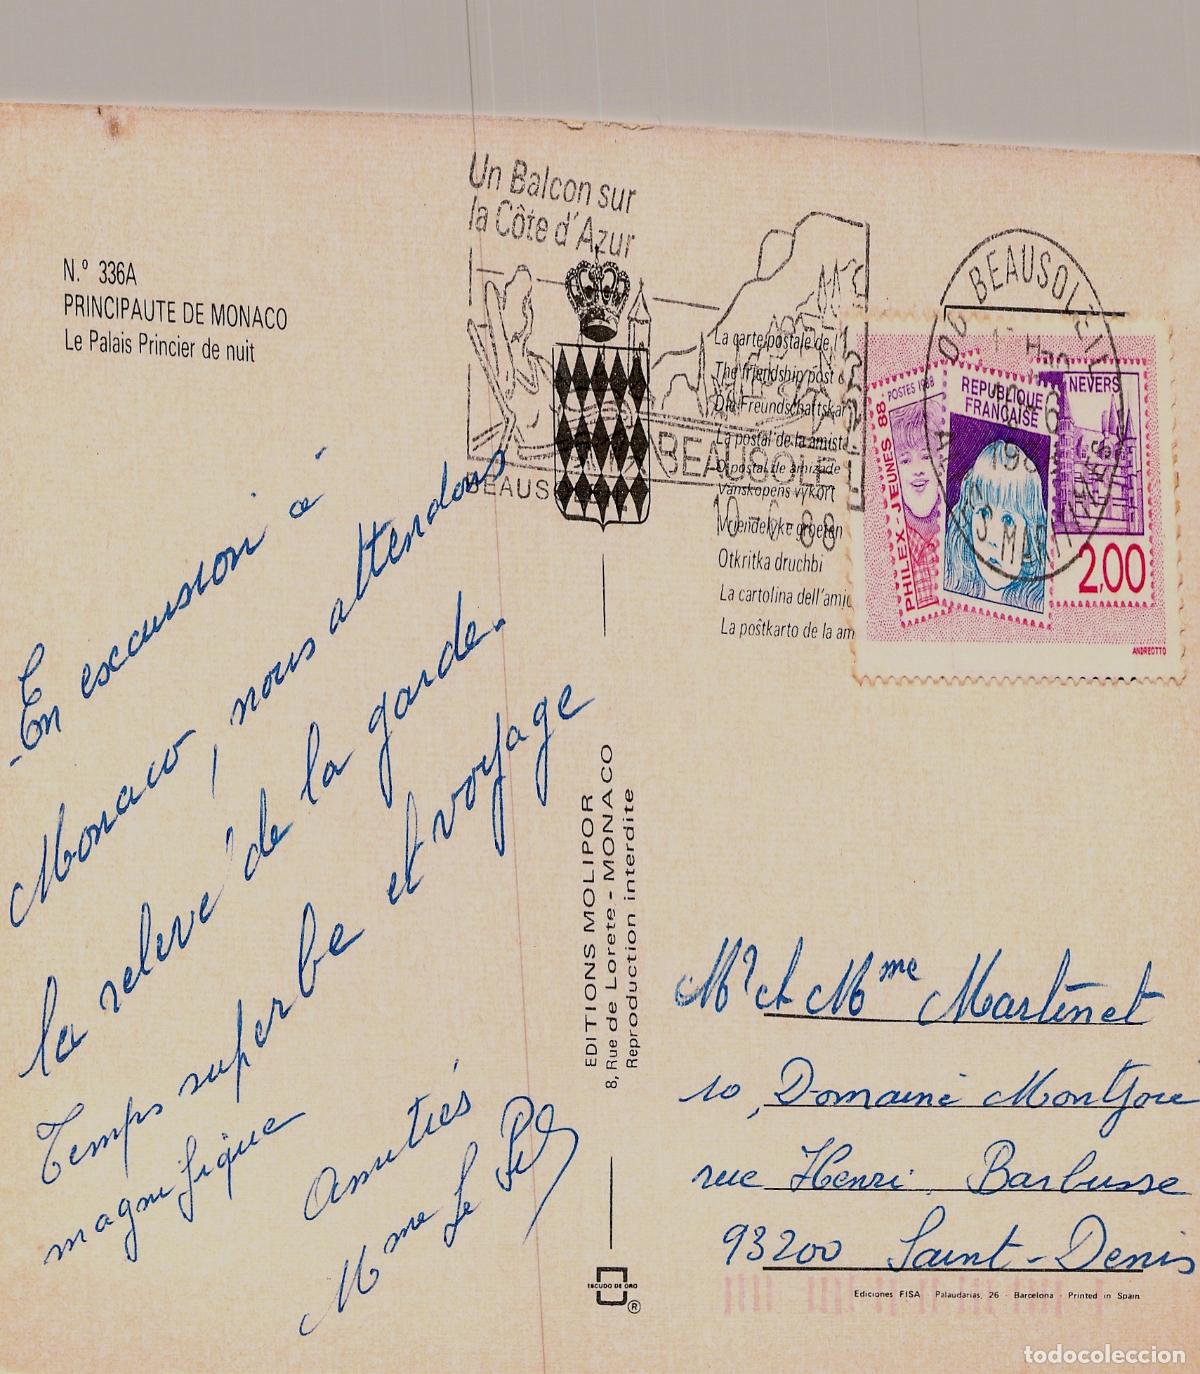 N.º 336A
PRINCIPAUTE DE MONACO
Le Palais Princier de nuit
Un Balcon sur
la Côte d'Azur
BEAUSOLEIL
10-6-88
La carte postale de l
The friendship post c
Die Freundschaftskar
La postal de la amista
O postal de amizade
Vänskopens vykort
Vriendelyke groeten
Otkritka druchbi
La cartolina dell'amic
La postkarto de la am
BEAUSOLEIL
REPUBLIQUE
FRANÇAISE
NEVERS
POSTES 1988
PHILEX-JEUNES 88
2,00
ANDREOTTO
En excursion à
Monaco, nous attendons
la relevé de la garde.
Temps superbe et voyage
magnifique
Amitiés
Mme Le
EDITIONS MOLIPOR
8, Rue de Lorete - MONACO
Reproduction interdite
Mr et Mme Martinet
10, Domaine Montjoie
rue Henri Barbusse
93200 Saint-Denis
ESCUDO DE ORO
®
Ediciones FISA Palaudarias, 26 - Barcelona - Printed in Spain
todocoleccion